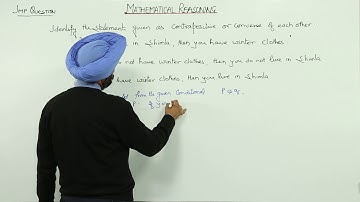 Imp Question
MATHEMATICAL REASONING
Identify the statement given as Contrapositive or Converse of each other
in Shimla, then you have winter clothes
not have winter clothes, then you do not live in Shimla
have winter clothes, then you live in Shimla
from the given Conditional P ⇒ q.
P : If you